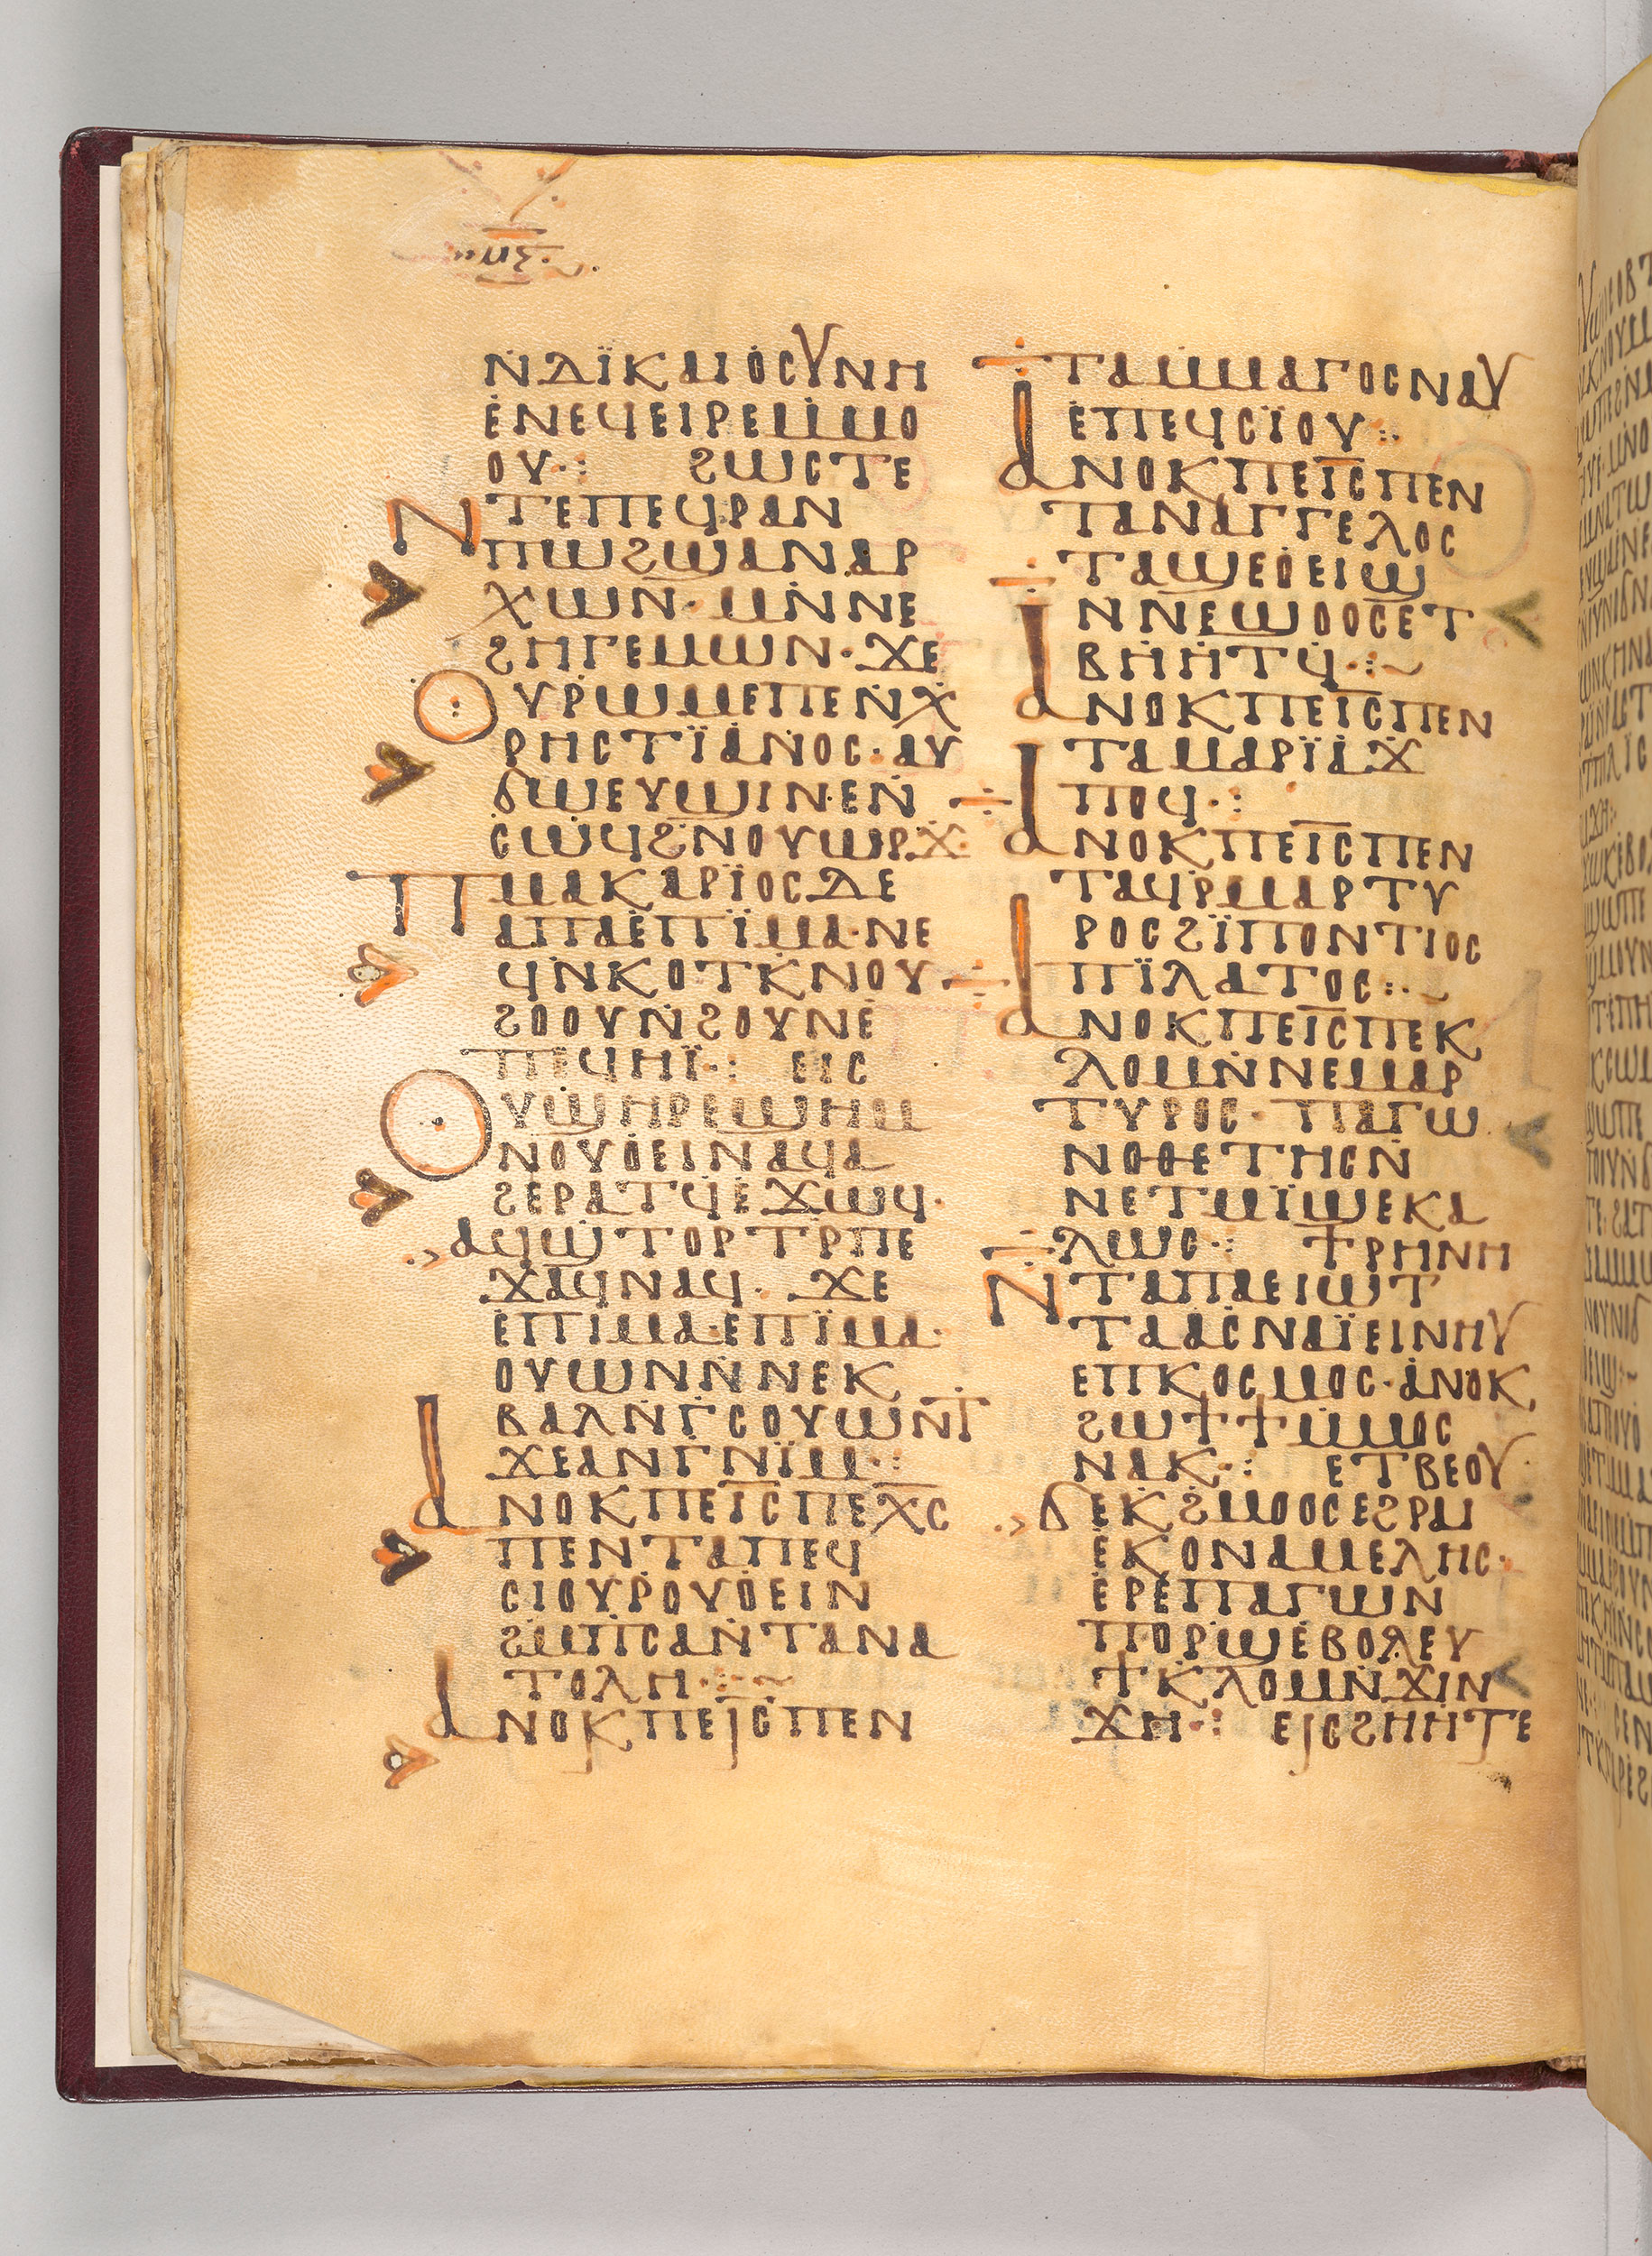 ⲛ̇ⲇⲓ̈ⲕⲁⲓⲟⲥⲩⲛⲏ
ⲉ̇ⲛⲉϥⲉⲓⲣⲉⲙ̇ⲙⲟ
ⲟⲩ·: ϩⲱⲥⲧⲉ
ⲛⲧⲉⲡⲉϥⲣⲁⲛ
ⲡⲱϩϣⲁⲛⲁⲣ
ⲭⲱⲛ· ⲙⲛ̇ⲛⲉ
ϩⲏⲅⲉⲙⲱⲛ· ϫⲉ
ⲟⲩⲣⲱⲙⲉⲡⲉⲛ̇ⲭ
ⲣⲏⲥⲧⲓ̈ⲁⲛⲟⲥ· ⲁⲩ
ϭⲱⲉⲩϣⲓⲛⲉⲛ̇
ⲥⲱϥϩⲛⲟⲩⲱⲣϫ·
ⲡⲙⲁⲕⲁⲣⲓ̈ⲟⲥⲇⲉ
ⲁⲡⲁⲉ̇ⲡⲓ̈ⲙⲁ· ⲛⲉ
ϥⲛ̇ⲕⲟⲧⲕ̇ⲛⲟⲩ
ϩⲟⲟⲩⲛ̇ϩⲟⲩⲛⲉ̇
ⲡⲉϥⲏⲓ̈·: ⲉⲓⲥ
ⲟⲩϣⲏⲣⲉϣⲏⲙ
ⲛⲟⲩⲟⲉⲓⲛⲁϥⲁ
ϩⲉⲣⲁⲧϥⲉ̇ϫⲱϥ·
ⲁϥϣⲧⲟⲣⲧⲣ̇ⲡⲉ
ϫⲁϥⲛⲁϥ· ϫⲉ
ⲉⲡⲓⲙⲁ· ⲉⲡⲓ̈ⲙⲁ·
ⲟⲩⲱⲛⲛ̇ⲛⲉⲕ
ⲃⲁⲗⲛ̇ⲅ̇ⲥⲟⲩⲱⲛⲧ̇
ϫⲉⲁⲛⲅ̇ⲛⲓ̈ⲙ·:
ⲁⲛⲟⲕⲡⲉⲓ̅ⲥ̅ⲡⲉⲭ̅ⲥ̅
ⲡⲉⲛⲧⲁⲡⲉϥ
ⲥⲓⲟⲩⲣⲟⲩⲟ̇ⲉⲓⲛ
ϩⲙ̇ⲡⲥⲁⲛ̇ⲧⲁⲛⲁ
ⲧⲟⲗⲏ·:~
ⲁⲛⲟⲕⲡⲉⲓ̅ⲥ̅ⲡⲉⲛ
ⲧⲁⲙⲙⲁⲅⲟⲥⲛⲁⲩ
ⲉ̇ⲡⲉϥⲥⲓ̈ⲟⲩ·:
ⲁⲛⲟⲕⲡⲉⲓ̅ⲥ̅ⲡⲉⲛ
ⲧⲁⲛⲁⲅⲅⲉⲗⲟⲥ
ⲧⲁϣⲉⲟⲉⲓϣ
ⲛⲛⲉϣⲟⲟⲥⲉⲧ
ⲃⲏⲏⲧϥ·:~
ⲁⲛⲟⲕⲡⲉⲓ̅ⲥ̅ⲡⲉⲛ
ⲧⲁⲙⲁⲣⲓ̈ⲁϫ
ⲡⲟϥ·:
ⲁⲛⲟⲕⲡⲉⲓ̅ⲥ̅ⲡⲉⲛ
ⲧⲁϥⲣ̇ⲙⲁⲣⲧⲩ
ⲣⲟⲥϩⲓ̈ⲡⲟⲛⲧⲓⲟⲥ
ⲡⲓ̈ⲗⲁⲧⲟⲥ·:~
ⲁⲛⲟⲕⲡⲉⲓ̅ⲥ̅ⲡⲉⲕ
ⲗⲟⲙⲛ̇ⲛⲉⲙⲁⲣ
ⲧⲩⲣⲟⲥ· ⲡⲁⲅⲱ
ⲛⲟⲑⲉⲧⲏⲥⲛ̇
ⲛⲉⲧⲙⲓ̈ϣⲉⲕⲁ
ⲗⲱⲥ·: ϯⲣⲏⲛⲏ
ⲛⲧⲁⲡⲁⲉⲓⲱⲧ
ⲧⲁⲁⲥⲛⲁⲓ̈ⲉⲓⲛⲏⲩ
ⲉⲡⲕⲟⲥⲙⲟⲥ· ⲁⲛⲟⲕ
ϩⲱϯϯⲙ̇ⲙⲟⲥ
ⲛⲁⲕ·: ⲉⲧⲃⲉⲟⲩ
ϭⲉⲕϩⲙⲟⲟⲥⲉϩⲣⲁⲓ
ⲉ̇ⲕⲟⲛⲁⲙⲉⲗⲏⲥ·
ⲉ̇ⲣⲉⲡⲁⲅⲱⲛ
ⲡⲟⲣϣⲉ̇ⲃⲟⲗⲉⲩ
ϯⲕⲗⲟⲙⲛ̇ϫⲓⲛ
ϫⲏ·: ⲉⲓⲥϩⲏⲏⲧⲉ